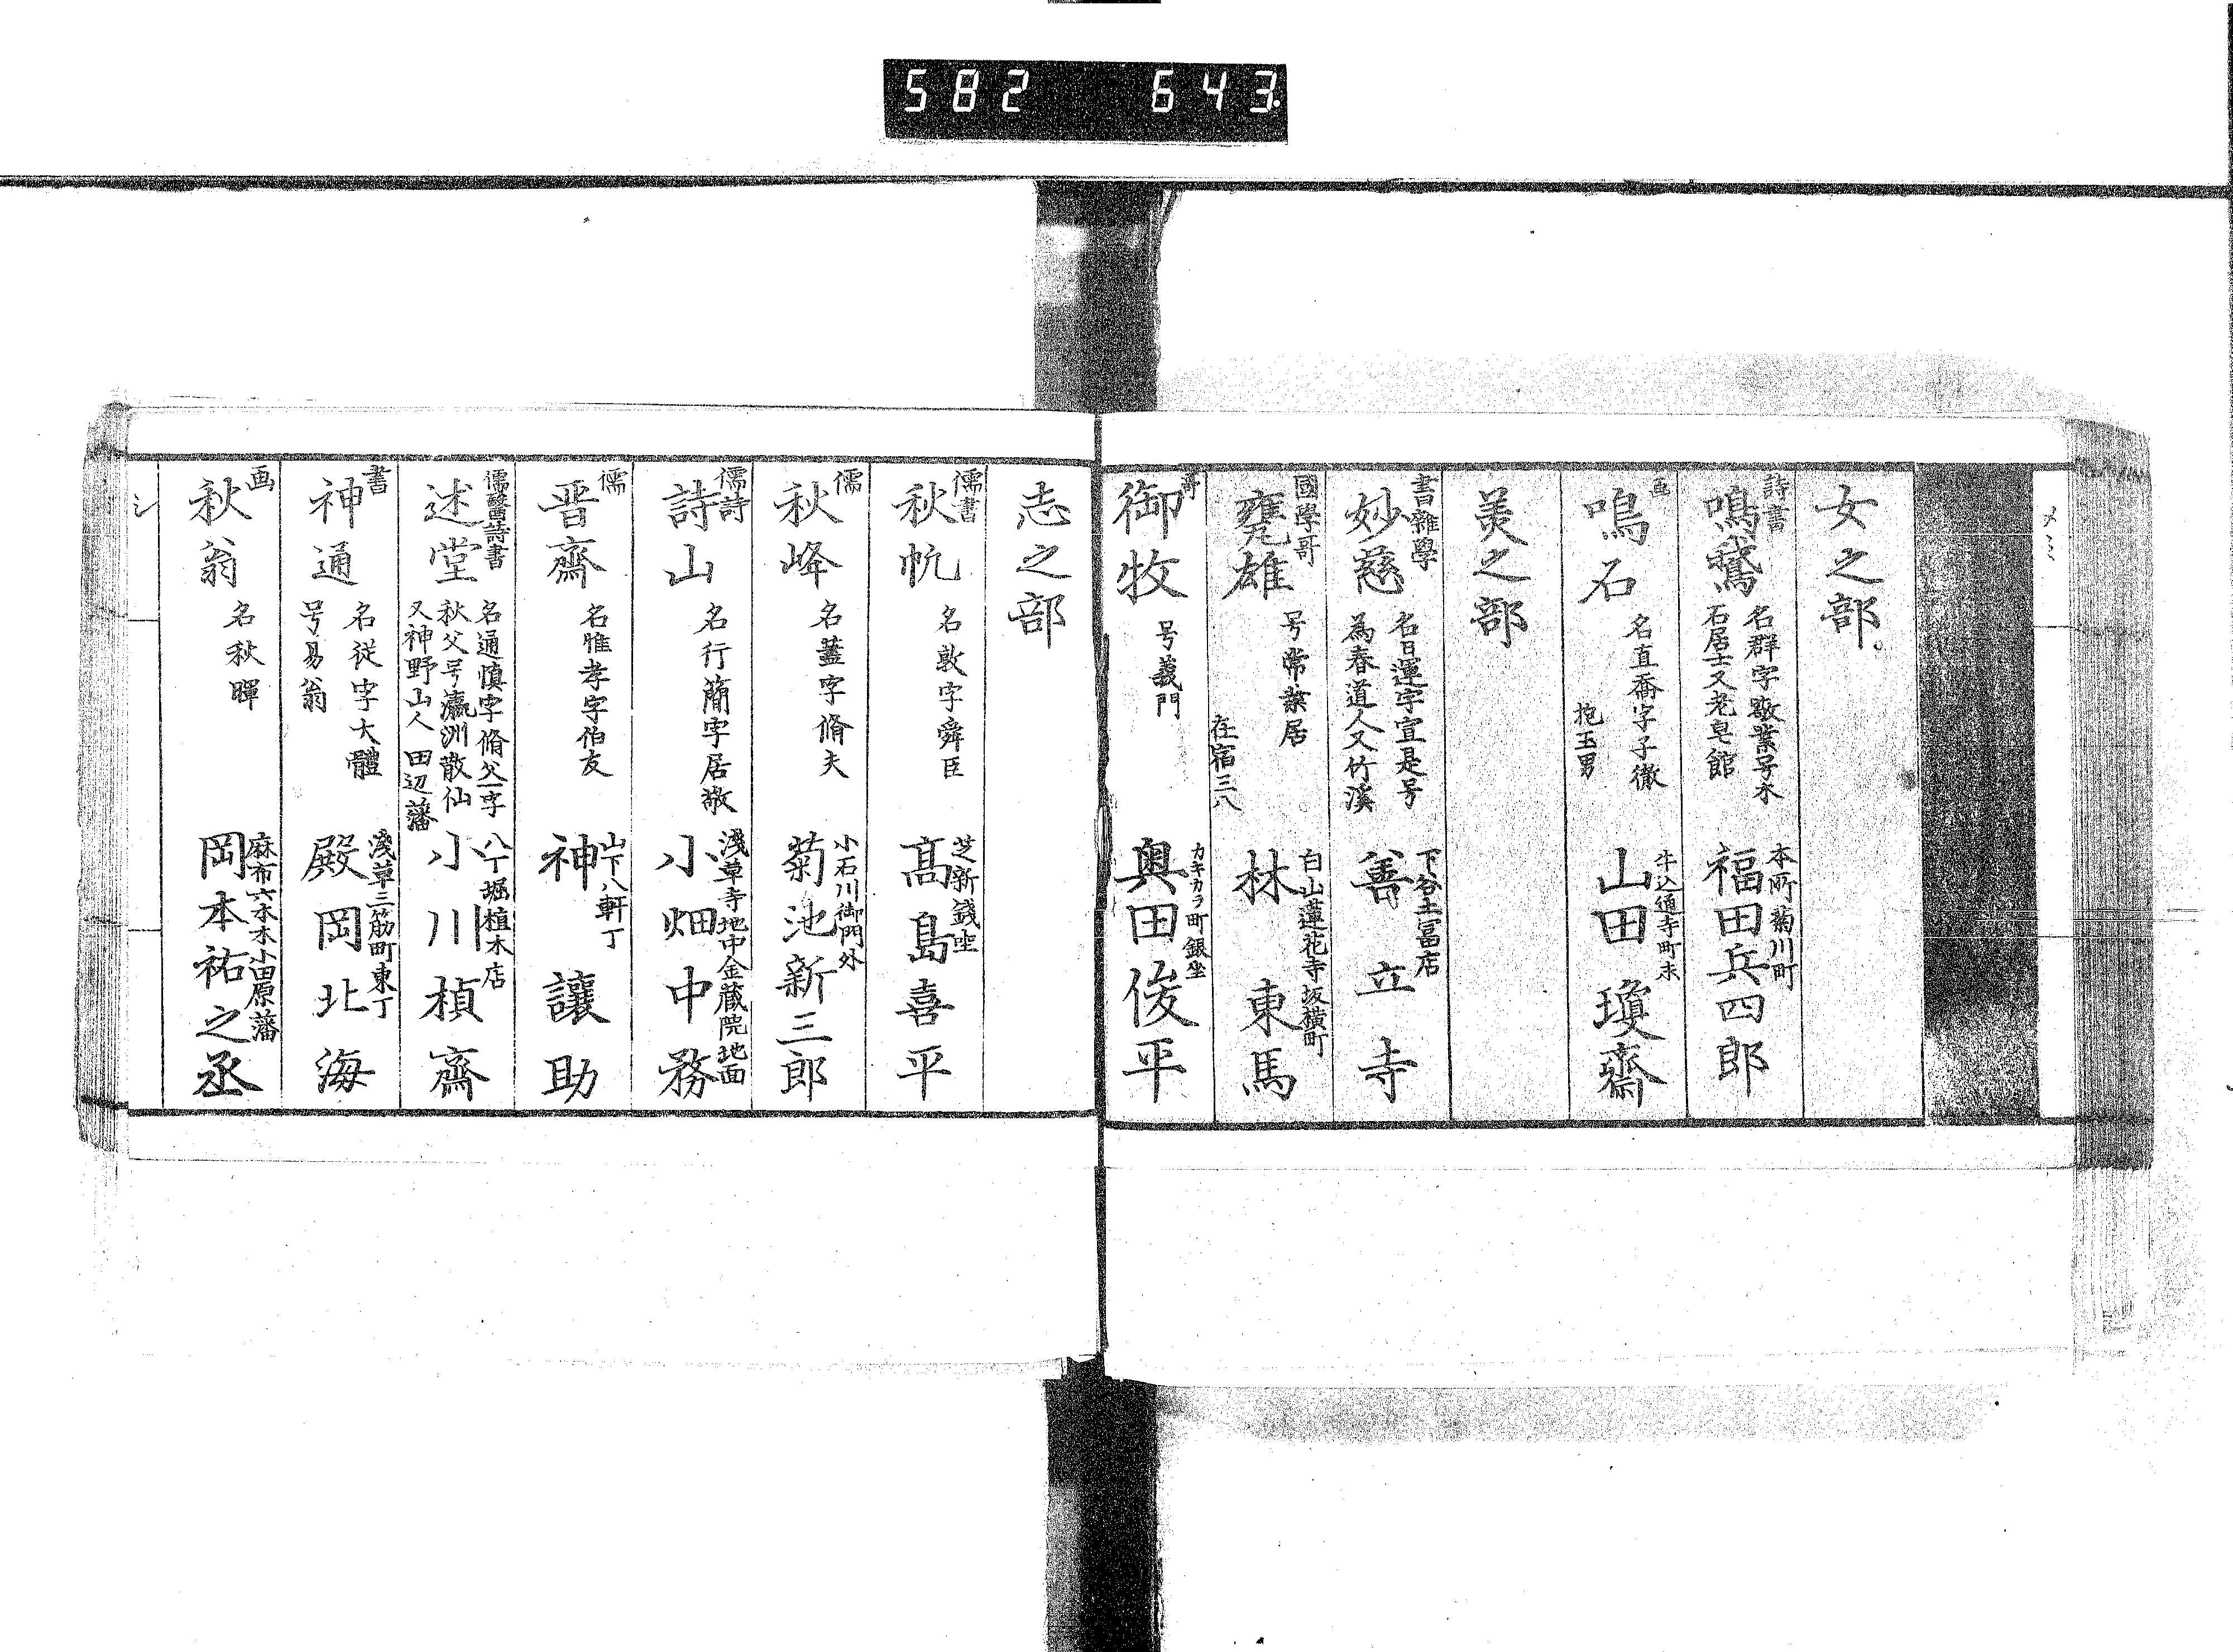 582 643.
メミ
女之部
詩書
鳴鵞
名群字敬業号木
石居士又老皂館
本所菊川町
福田兵四郎
画
鳴石
名直養字子徹
抱玉男
牛込通寺町末
山田瓊齋
美之部
書雜學
妙慈
名日運字宜是号
為春道人又竹溪
下谷土冨店
善立寺
國學哥
甕雄
号常葉居
在宿三八
白山蓮花寺坂横町
林東馬
哥
御牧
号義門
カキカラ町銀坐
奥田俊平
志之部
儒書
秋帆
名敦字舜臣
芝新錢坐
髙島喜平
儒
秋峰
名蓋字脩夫
小石川御門外
菊池新三郎
儒詩
詩山
名行簡字居敬
淺草寺地中金藏院地面
小畑中務
儒
晋齋
名惟孝字伯友
山下八軒丁
神讓助
儒醫詩書
述堂
名通慎字脩父一字
秋父号瀛洲散仙
又神野山人 田辺藩
八丁堀植木店
小川槙齋
書
神通
名従字大體
号易翁
淺草三筋町東丁
殿岡北海
画
秋翁
名秋暉
麻布六本木小田原藩
岡本祐之丞
シ